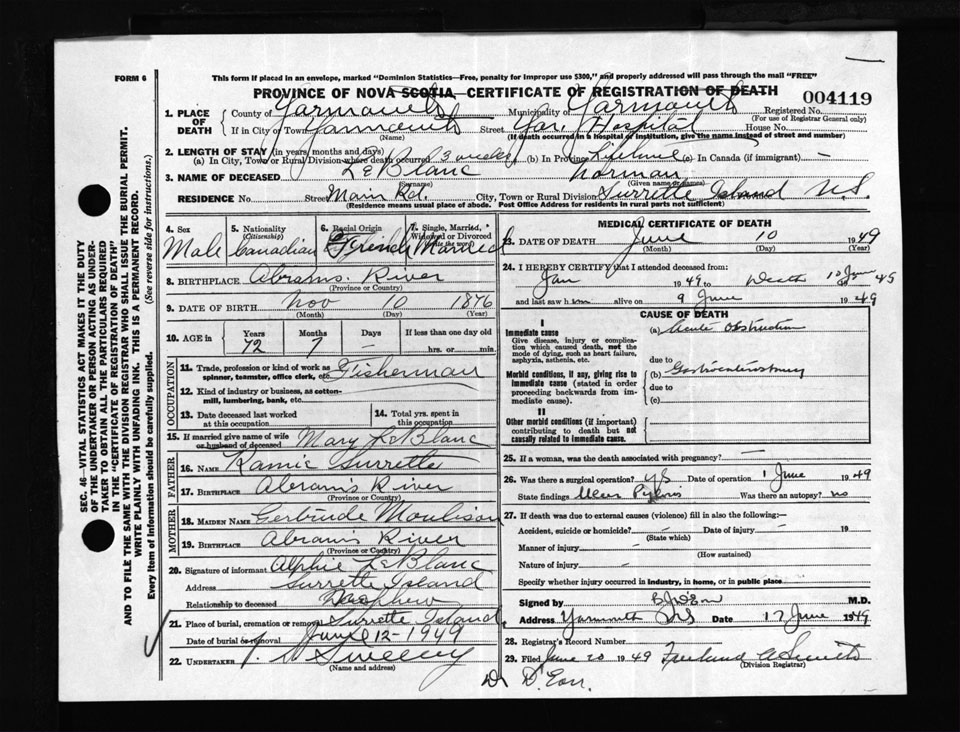 FORM 6
This form if placed in an envelope, marked "Dominion Statistics—Free, penalty for improper use $300," and properly addressed will pass through the mail "FREE"
PROVINCE OF NOVA SCOTIA—CERTIFICATE OF REGISTRATION OF DEATH
004119
1. PLACE OF DEATH County of Yarmouth Municipality of Yarmouth Registered No.
(For use of Registrar General only)
If in City or Town Yarmouth Street Yar. Hospital House No.
(Name) (If death occurred in a hospital or institution, give the name instead of street and number)
2. LENGTH OF STAY (in years, months and days)
(a) In City, Town or Rural Division where death occurred 3 weeks (b) In Province Lifetime (c) In Canada (if immigrant) —
3. NAME OF DECEASED LeBlanc Norman
(Surname) (Given name or names)
RESIDENCE No. Street Main Rd. City, Town or Rural Division Surrette Island N.S.
(Residence means usual place of abode. Post Office Address for residents in rural parts not sufficient)
4. Sex Male
5. Nationality (Citizenship) Canadian
6. Racial Origin French
7. Single, Married, Widowed or Divorced (Write the word) Married
8. BIRTHPLACE Abrams River
(Province or Country)
9. DATE OF BIRTH Nov 10 1876
(Month) (Day) (Year)
10. AGE in Years Months Days If less than one day old
72 7 — hrs. or min.
OCCUPATION
11. Trade, profession or kind of work as spinner, teamster, office clerk, etc. Fisherman
12. Kind of industry or business, as cotton-mill, lumbering, bank, etc.
13. Date deceased last worked at this occupation
14. Total yrs. spent in this occupation
15. If married give name of wife or husband of deceased Mary LeBlanc
FATHER
16. NAME Surrette
17. BIRTHPLACE Abrams River
(Province or Country)
MOTHER
18. MAIDEN NAME Gertrude Moulison
19. BIRTHPLACE Abrams River
(Province or Country)
20. Signature of informant Alphie LeBlanc
Address Surrette Island
Relationship to deceased Nephew
21. Place of burial, cremation or removal Surrette Island
Date of burial or removal June 12-1949
22. UNDERTAKER Sweeny
(Name and address)
MEDICAL CERTIFICATE OF DEATH
23. DATE OF DEATH June 10 1949
(Month) (Day) (Year)
24. I HEREBY CERTIFY that I attended deceased from:
Jan 1949 to Death 10 June 45
and last saw h im alive on 9 June 1949
CAUSE OF DEATH
I
Immediate cause
Give disease, injury or complication which caused death, not the mode of dying, such as heart failure, asphyxia, asthenia, etc.
(a) Acute Obstruction
due to
Morbid conditions, if any, giving rise to immediate cause (stated in order proceeding backwards from immediate cause).
(b) Gastroenterostomy
due to
(c)
II
Other morbid conditions (if important) contributing to death but not causally related to immediate cause.
25. If a woman, was the death associated with pregnancy? —
26. Was there a surgical operation? yes Date of operation 1 June 1949
State findings Ulcer Pylorus Was there an autopsy? no
27. If death was due to external causes (violence) fill in also the following:—
Accident, suicide or homicide? — Date of injury — 19
(State which)
Manner of injury —
(How sustained)
Nature of injury —
Specify whether injury occurred in industry, in home, or in public place
Signed by M.D.
Address Yarmouth NS Date 17 June 1949
28. Registrar's Record Number
29. Filed June 20 1949 Smith
(Division Registrar)
Dr
SEC. 46—VITAL STATISTICS ACT MAKES IT THE DUTY
OF THE UNDERTAKER OR PERSON ACTING AS UNDER-
TAKER TO OBTAIN ALL THE PARTICULARS REQUIRED
IN THE "CERTIFICATE OF REGISTRATION OF DEATH"
AND TO FILE THE SAME WITH THE DIVISION REGISTRAR WHO SHALL ISSUE THE BURIAL PERMIT.
WRITE PLAINLY WITH UNFADING INK. THIS IS A PERMANENT RECORD.
Every item of information should be carefully supplied. (See reverse side for instructions.)